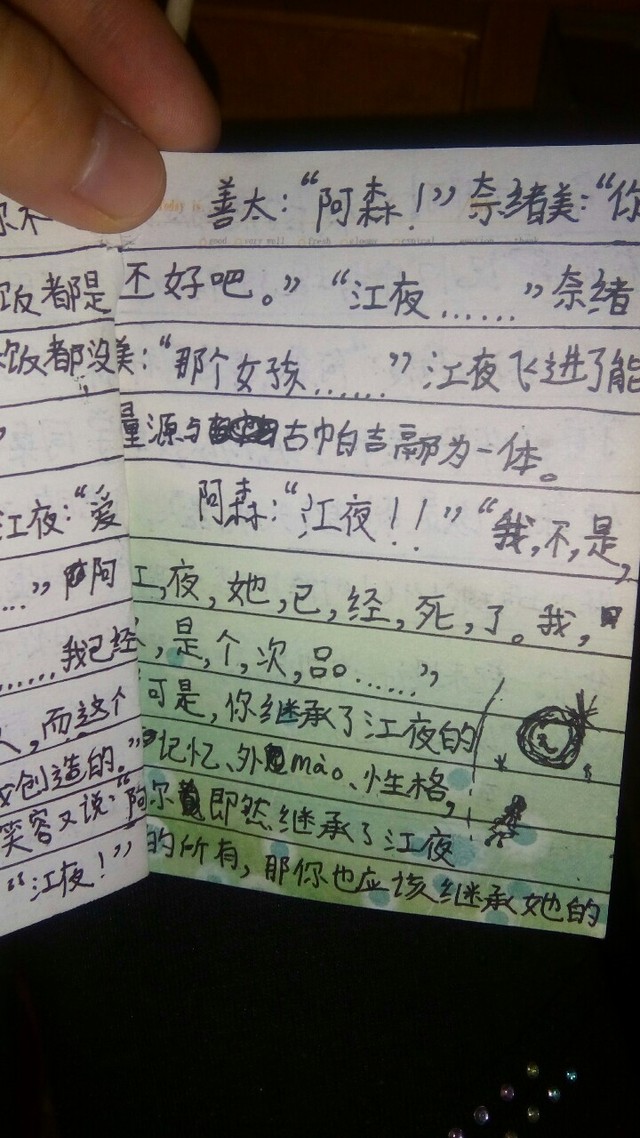 你不
饭都是
饭都没
江夜：“爱
……”阿
……我已经
，而这个
创造的。”
笑容又说：“阿
“江夜！”
善太：“阿森！”奈绪美：“你
还好吧。”“江夜……”奈绪
美：“那个女孩……”江夜飞进了能
量源与古帕吉鬲为一体。
阿森：“江夜！！”“我，不，是，
江，夜，她，已，经，死，了。我，
，是，个，次，品……”
可是，你继承了江夜的
记忆、外mào、性格，
你即然继承了江夜
的所有，那你也应该继承她的